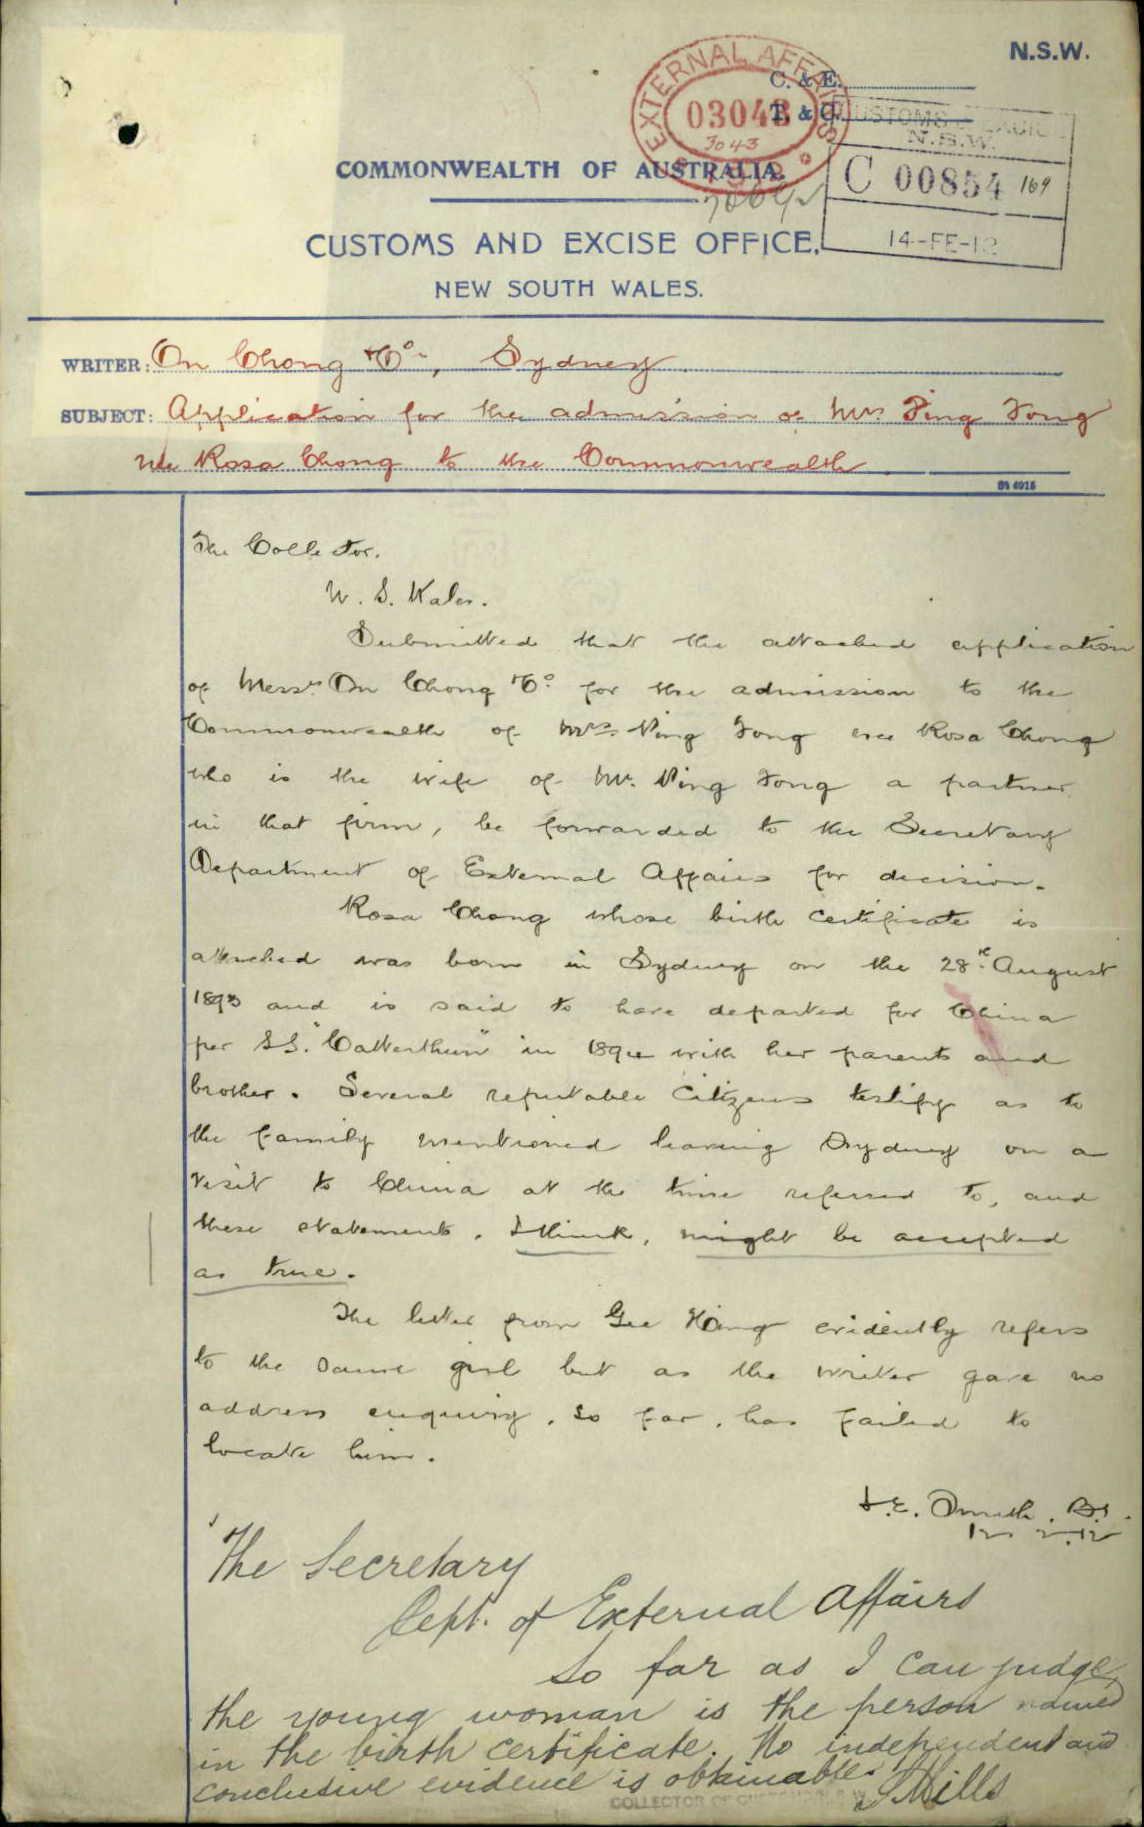 N.S.W.
EXTERNAL AFFAIRS
C. & E.
03043
T. & C.
3043
CUSTOMS & EXCISE
N.S.W.
C 00854 169
14-FE-12
COMMONWEALTH OF AUSTRALIA.
CUSTOMS AND EXCISE OFFICE,
NEW SOUTH WALES.
WRITER: On Chong & Co., Sydney
SUBJECT: Application for the admission of Mrs Ping Fong
née Rosa Chong to the Commonwealth
The Collector.
N. S. Wales.
Submitted that the attached application
of Messrs On Chong & Co. for the admission to the
Commonwealth of Mrs. Ping Fong nee Rosa Chong
who is the wife of Mr. Ping Fong a partner
in that firm, be forwarded to the Secretary
Department of External Affairs for decision.
Rosa Chong whose birth certificate is
attached was born in Sydney on the 28th August
1893 and is said to have departed for China
per S.S. "Catterthun" in 1894 with her parents and
brother. Several reputable citizens testify as to
the family mentioned leaving Sydney on a
visit to China at the time referred to, and
these statements, I think, might be accepted
as true.
The letter from Gee Hang evidently refers
to the same girl but as the writer gave no
address enquiry, so far, has failed to
locate him.
J.E. Smith.
12.2.12
The Secretary
Dept. of External Affairs
So far as I can judge,
the young woman is the person named
in the birth certificate. No independent and
conclusive evidence is obtainable.
Mills
COLLECTOR OF CUSTOMS